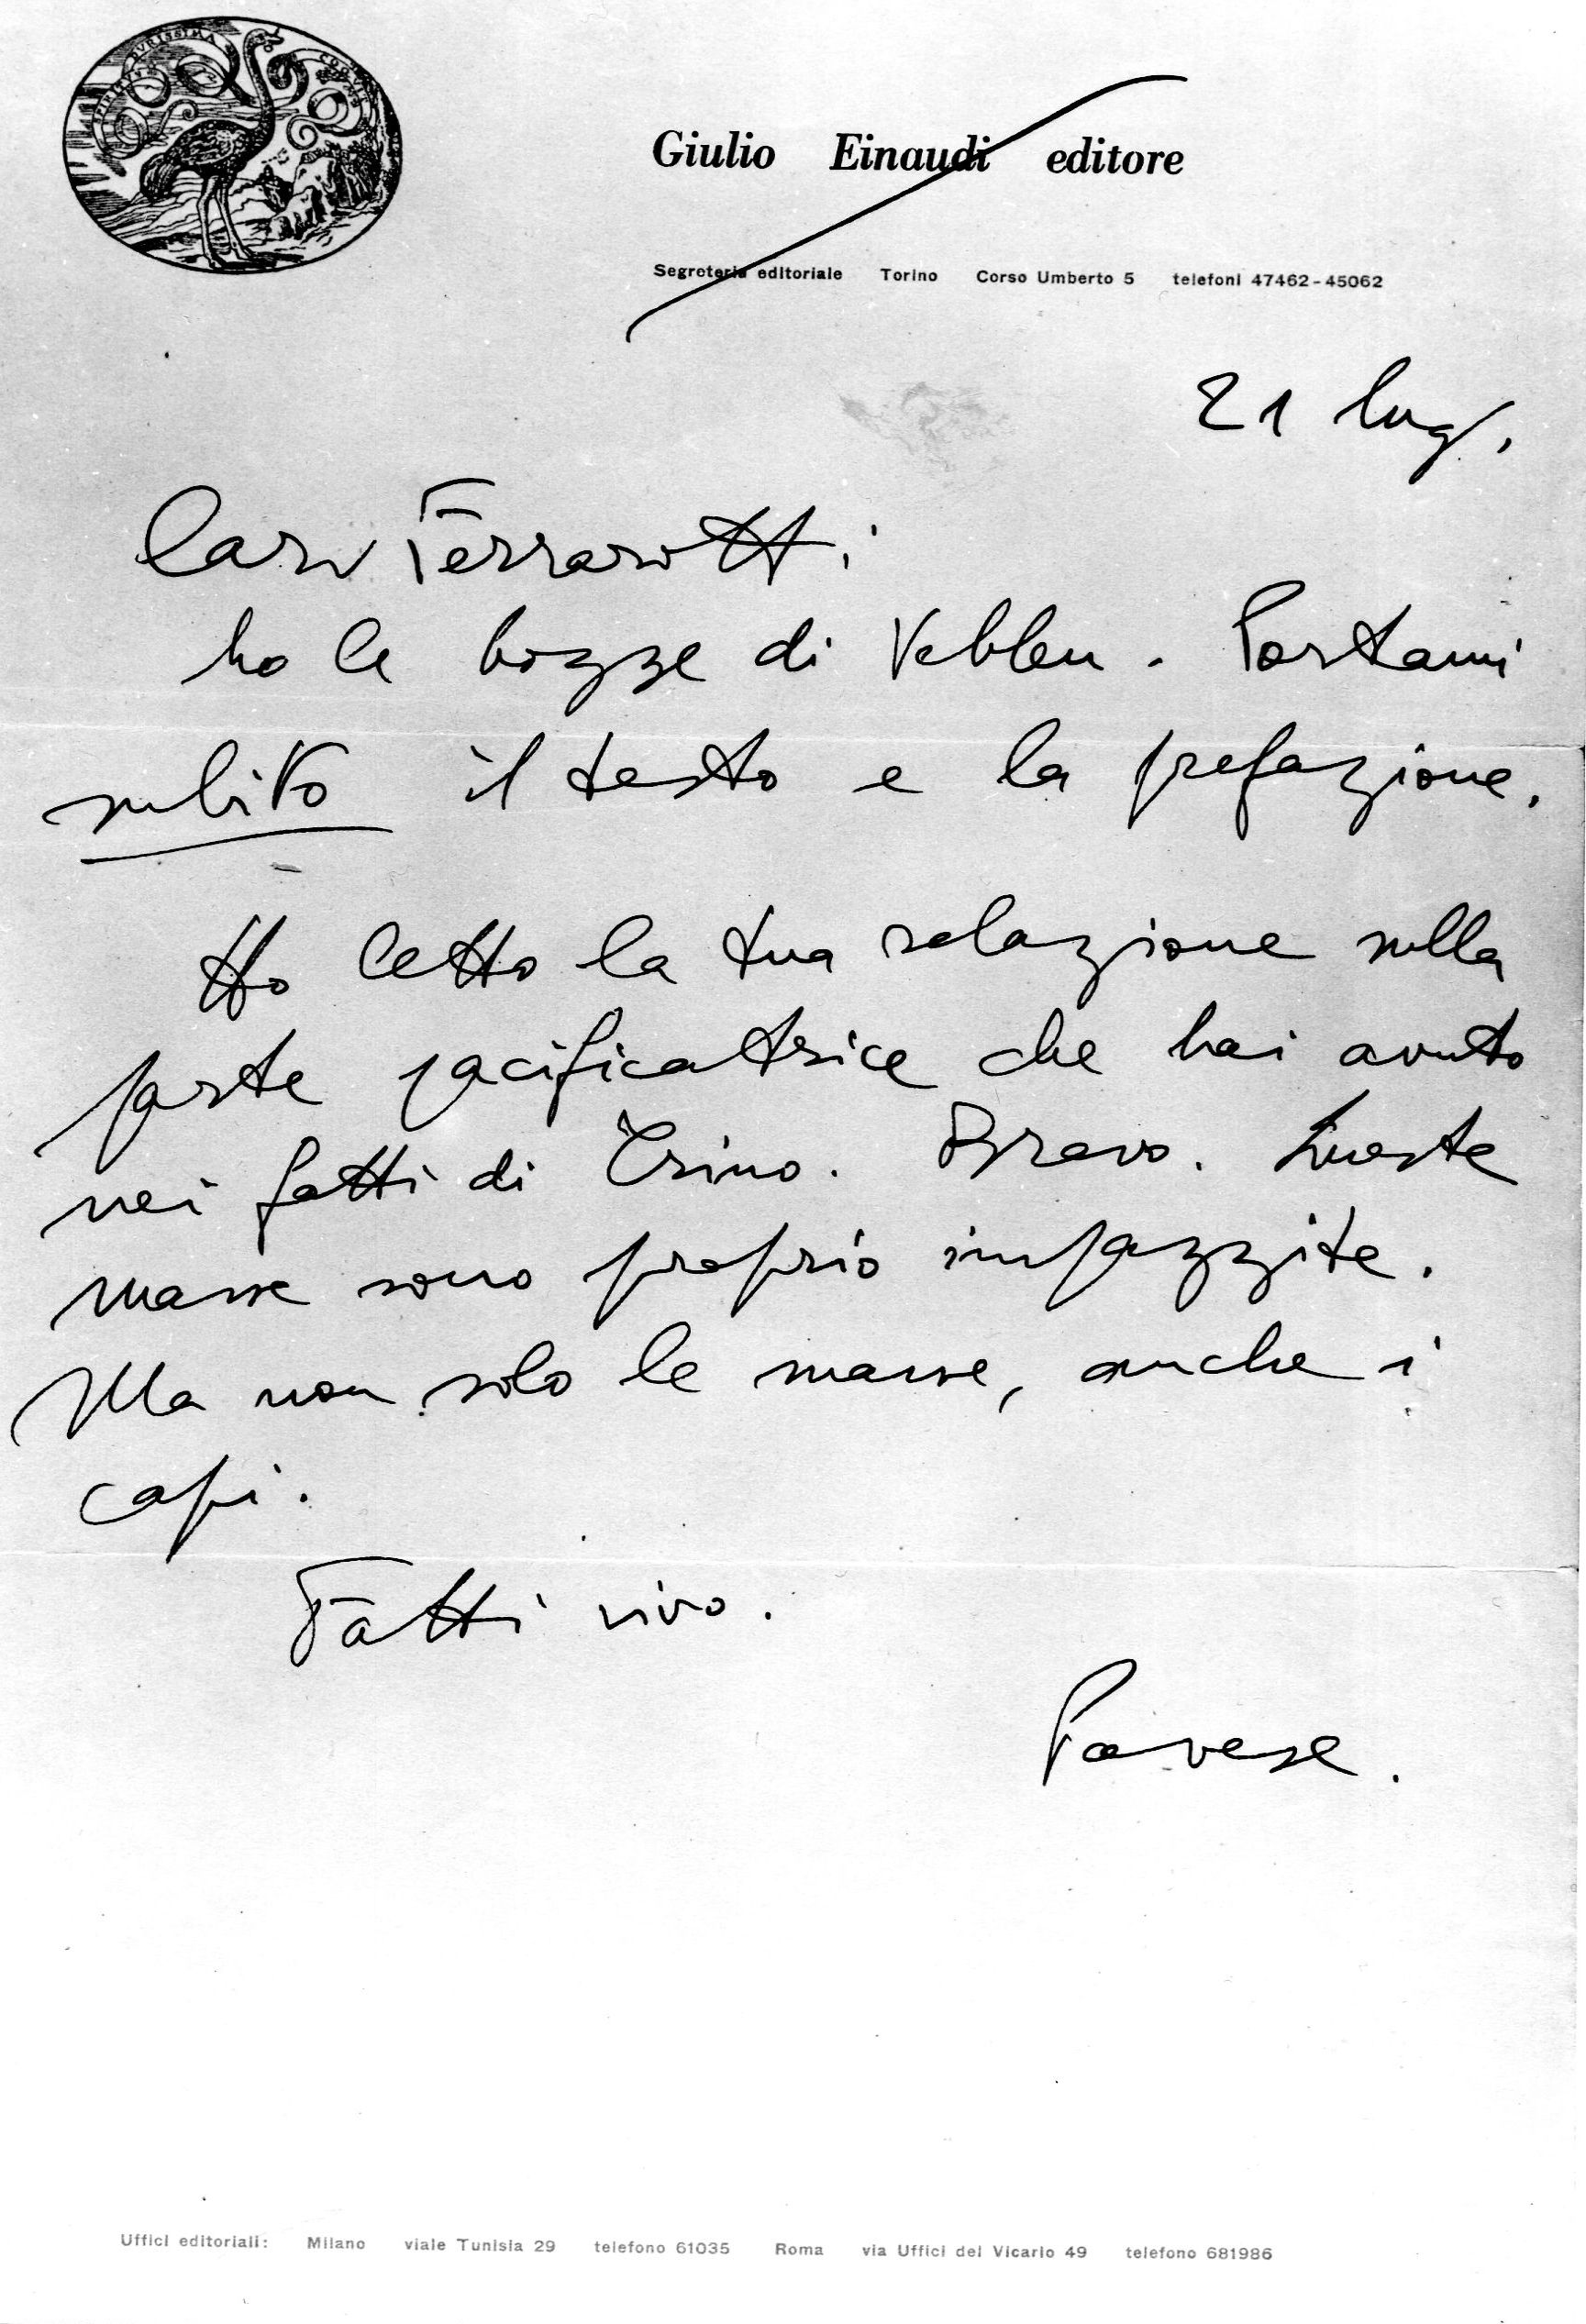 SPIRITUS DURISSIMA COQUIT
Giulio Einaudi editore
Segreteria editoriale Torino Corso Umberto 5 telefoni 47462-45062
21 lug.
Caro Ferrarotti:
ho le bozze di Veblen. Portami
subito il testo e la prefazione.
Ho letto la tua relazione sulla
parte pacificatrice che hai avuto
nei fatti di Trino. Bravo. Queste
masse sono proprio impazzite.
Ma non solo le masse, anche i
capi.
Fatti vivo.
Pavese.
Uffici editoriali: Milano viale Tunisia 29 telefono 61035 Roma via Uffici del Vicario 49 telefono 681986